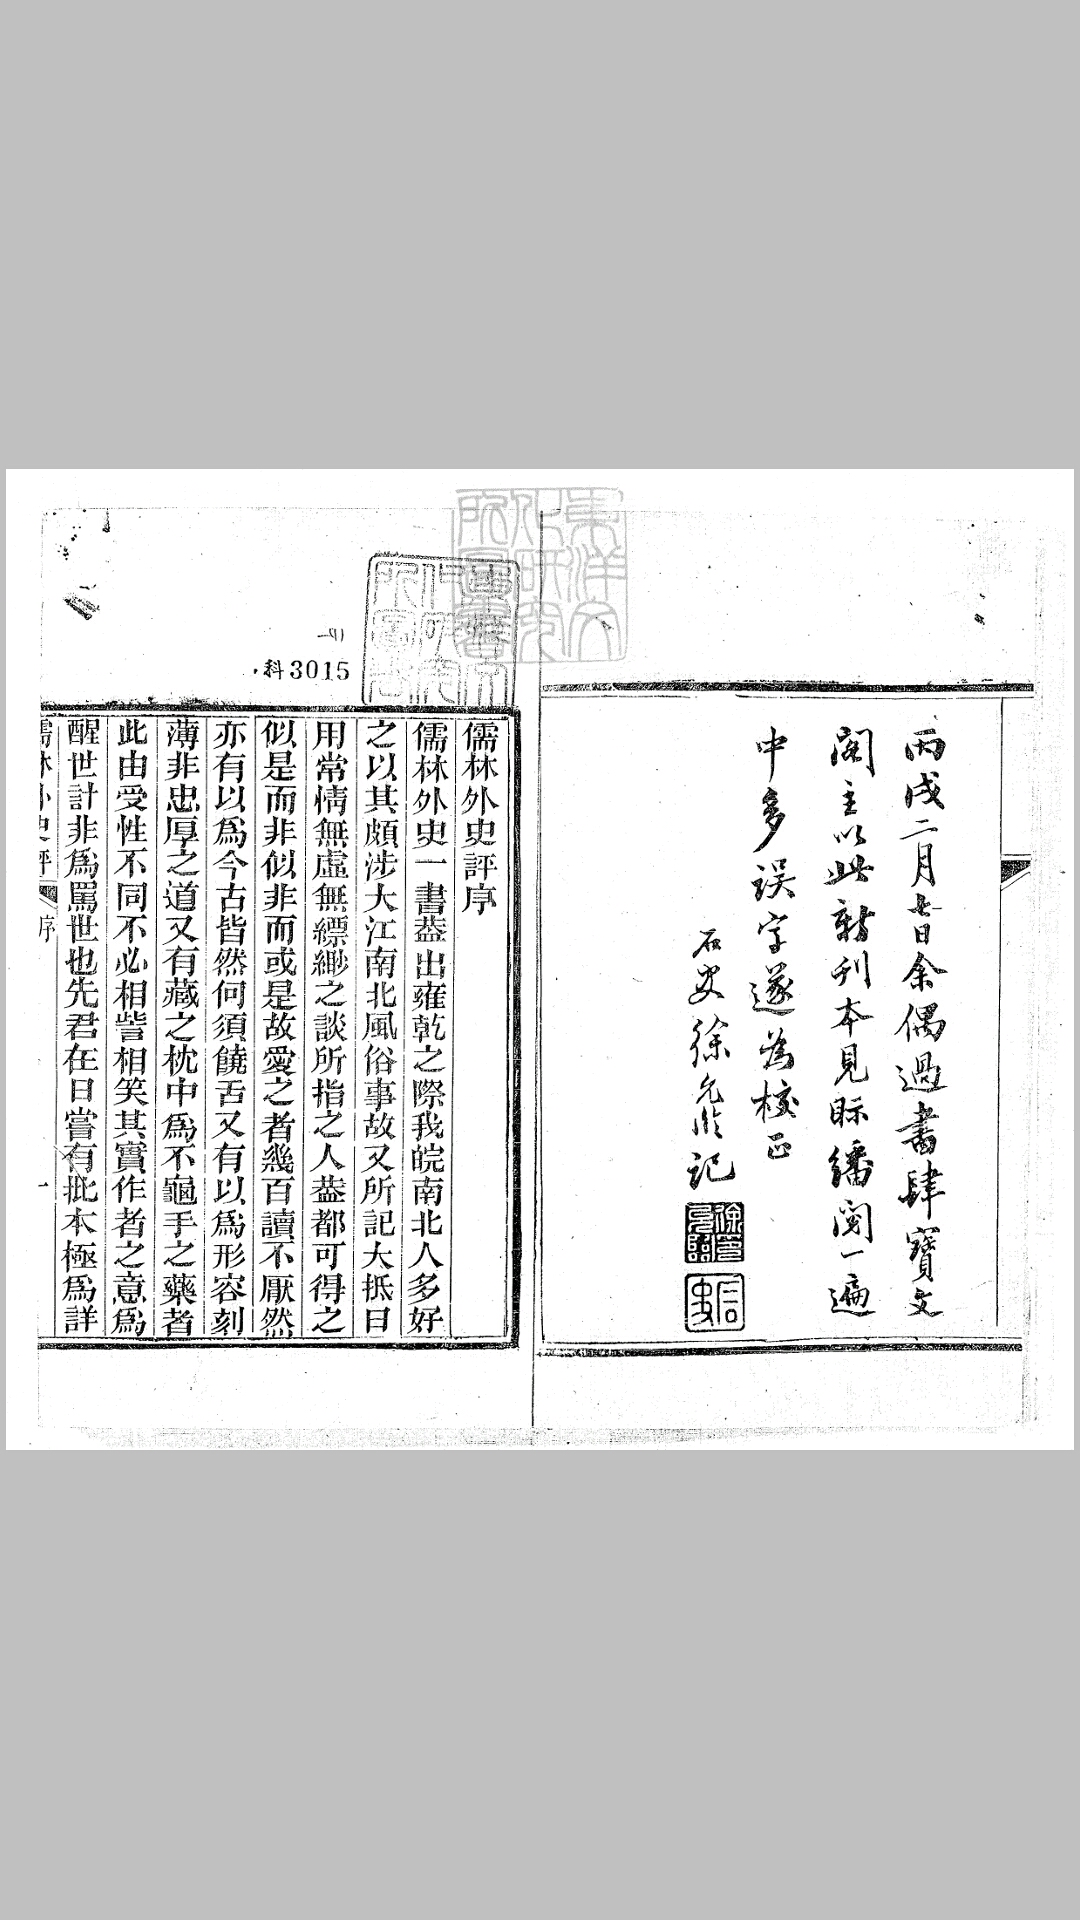 丙戌二月七日余偶過書肆寶文
閣主以此新刊本見眎繙閱一遍
中多誤字遂為校正
石史徐允臨記
東洋文化研究所圖書
科3015
儒林外史評序
儒林外史一書蓋出雍乾之際我皖南北人多好
之以其頗涉大江南北風俗事故又所記大抵日
用常情無虛無縹緲之談所指之人蓋都可得之
似是而非似非而或是故愛之者幾百讀不厭然
亦有以爲今古皆然何須饒舌又有以爲形容刻
薄非忠厚之道又有藏之枕中爲不龜手之藥者
此由受性不同不必相訾相笑其實作者之意爲
醒世計非爲罵世也先君在日嘗有批本極爲詳
儒林外史評
序
一